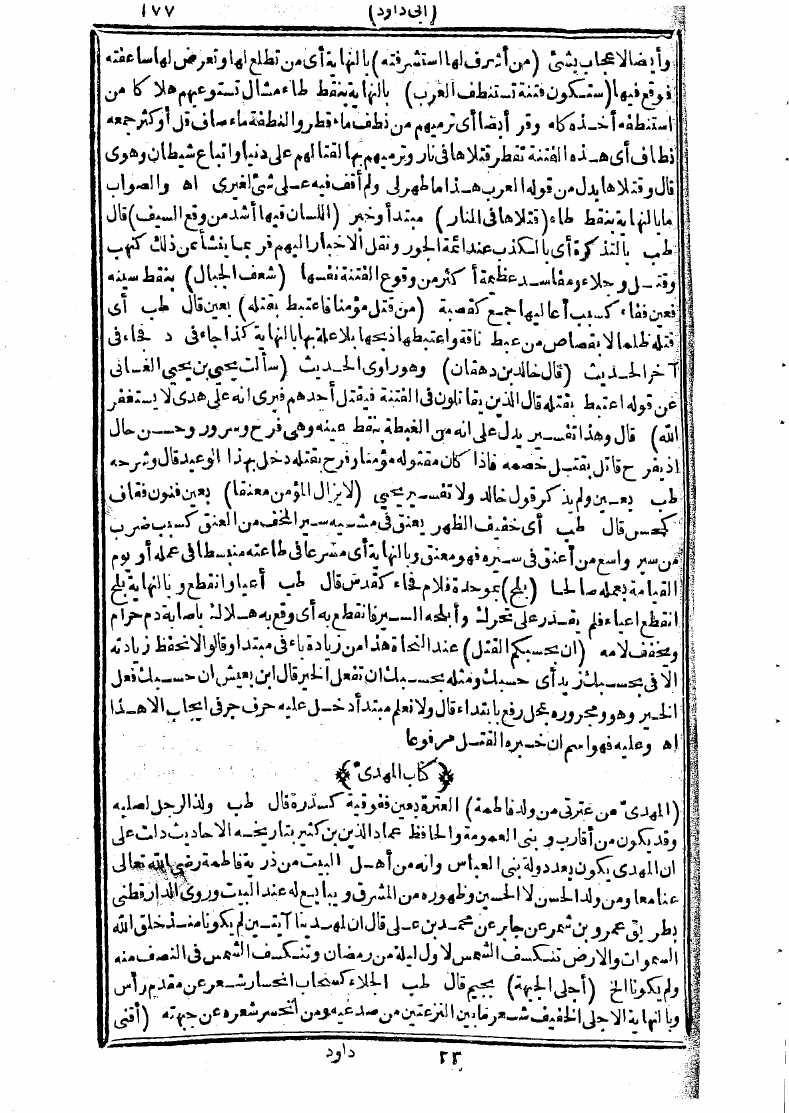 (ابى داود) ١٧٧
وأيضا الاعجاب بشئ (من أشرف لها استشرفته) بالنهاية أى من تطلع لها وتعرض لها ساعفته
فوقع فيها (ستكون فتنة تستنظف العرب) بالنهاية بنقط طاء مشال تستوعبهم هلاكا من
استنظفه أخذه كله وقر أيضا أى ترميهم من نطف ماء قطر والنطفة ماء صاف قل أو كثر جمعه
نطاف أى هذه الفتنة تقطر قتلاها فى نار وترميهم بها لقتالهم على دنيا واتباع شيطان وهوى
قال وقتلاها بدل من قوله العرب هذا ما ظهر لى ولم أقف فيه على شئ لغيرى اه والصواب
ما بالنهاية بنقط طاء (قتلاها فى النار) مبتدأ وخبر (اللسان فيها أشد من وقع السيف) قال
طب بالتذكرة أى بالكذب عند ائمة الجور ونقل الاخبار اليهم فربما ينشأ عن ذلك كنهب
وقتل وجلاء ومفاسد عظيمة أكثر من وقوع الفتنة نفسها (شعف الجبال) بنقط سينه
فعين ففاء كسبب أعاليها جمع كقصبة (من قتل مؤمنا فاعتبط بقتله) بعين قال طب أى
قتله ظلما لا بقصاص من عبط ناقة واعتبطها ذبحها بلا علة بها بالنهاية كذا جاء فى د فجاء فى
آخر الحديث (قال خالد بن دهقان) وهو راوى الحديث (سألت يحيى بن يحيى الغسانى
عن قوله اعتبط بقتله قال الذين يقاتلون فى الفتنة فيقتل أحدهم فيرى انه على هدى لا يستغفر
الله) قال وهذا تفسير يدل على انه من الغبطة بنقط عينه وهى فرح وسرور وحسن حال
اذ يفرح قاتل بقتل خصمه فاذا كان مقتوله مؤمنا وفرح بقتله دخل بهذا الوعيد قال وشرحه
طب بعين ولم يذكر قول خالد ولا تفسير يحيى (لا يزال المؤمن معنقا) بعين فنون فقاف
كمحسن قال طب أى خفيف الظهر يعنق فى مشيه سير المخف من العنق كسبب ضرب
من سير واسع من أعنق فى سيره فهو معنق وبالنهاية أى مسرعا فى طاعته منبسطا فى عمله أو يوم
القيامة بعمله صالحا (بلح) بموحدة فلام فحاء كقدس قال طب أعيا وانقطع وبالنهاية بلح
انقطع اعياء فلم يقدر على تحرك وأبلحه السير فانقطع به أى وقع به هلاك باصابة دم حرام
ومخفف لامه (ان بحسبكم القتل) عند النحاة هذا من زيادة باء فى مبتدا وقالوا لا نحفظ زيادته
الا فى بحسبك زيد أى حسبك ومثله بحسبك ان تفعل الخير قال ابن يعيش ان حسبك فعل
الخير وهو ومجروره بمحل رفع بابتداء قال ولا نعلم مبتدأ دخل عليه حرف جر فى ايجاب الا هذا
اه وعليه فهو اسم ان خبره القتل مرفوعا
﴿كتاب المهدى﴾
(المهدى من عترتى من ولد فاطمة) العترة بعين ففوقية كسدرة قال طب ولد الرجل لصلبه
وقد يكون من أقارب وبنى العمومة والحافظ عماد الدين بن كثير بتاريخه الاحاديث دلت على
ان المهدى يكون بعد دولة بنى العباس وانه من أهل البيت من ذرية فاطمة رضى الله تعالى
عنا معا ومن ولد الحسن لا الحسين وظهوره من المشرق ويبايع له عند البيت وروى الدارقطنى
بطريق عمرو بن شمر عن جابر عن محمد بن على قال ان لمهدينا آيتين لم يكونا منذ خلق الله
السموات والارض تنكسف الشمس لاول ليلة من رمضان وتنكسف الشمس فى النصف منه
ولم يكونا الخ (أجلى الجبهة) بجيم قال طب الجلاء كسحاب انحسار شعر عن مقدم رأس
وبالنهاية الاجلى الخفيف شعر ما بين النزعتين من صدغيه ومن انحسر شعره عن جبهته (أقنى
٢٣ داود